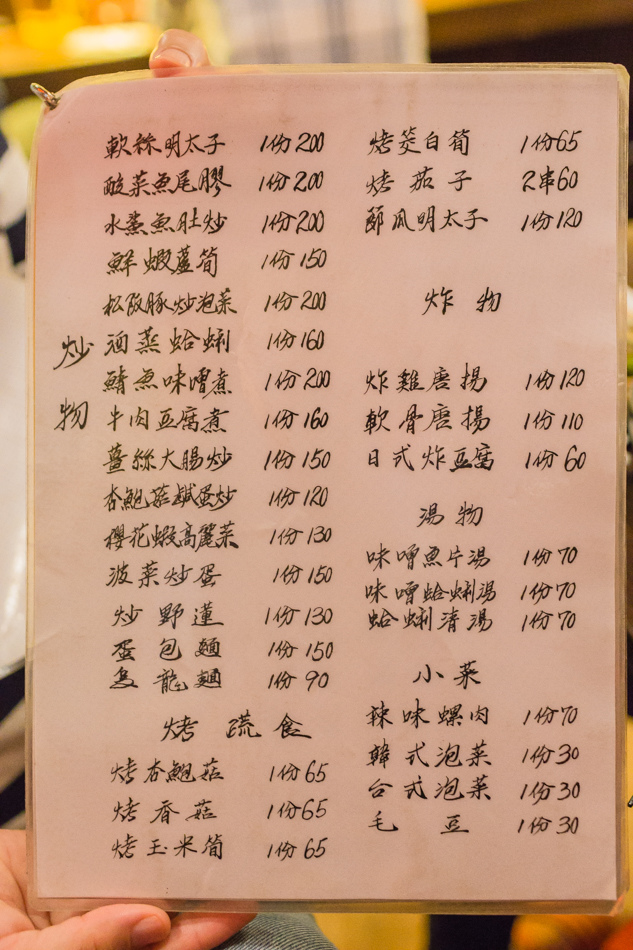 炒物
軟絲明太子 1份200
酸菜魚尾膠 1份200
水蓮魚肚炒 1份200
鮮蝦蘆筍 1份150
松阪豚炒泡菜 1份200
酒蒸蛤蜊 1份160
鯖魚味噌煮 1份200
牛肉豆腐煮 1份160
薑絲大腸炒 1份150
杏鮑菇鹹蛋炒 1份120
櫻花蝦高麗菜 1份130
菠菜炒蛋 1份150
炒野蓮 1份130
蛋包麵 1份150
烏龍麵 1份90
烤蔬食
烤杏鮑菇 1份65
烤香菇 1份65
烤玉米筍 1份65
烤茭白筍 1份65
烤茄子 2串60
節瓜明太子 1份120
炸物
炸雞唐揚 1份120
軟骨唐揚 1份110
日式炸豆腐 1份60
湯物
味噌魚片湯 1份70
味噌蛤蜊湯 1份70
蛤蜊清湯 1份70
小菜
辣味螺肉 1份70
韓式泡菜 1份30
台式泡菜 1份30
毛豆 1份30